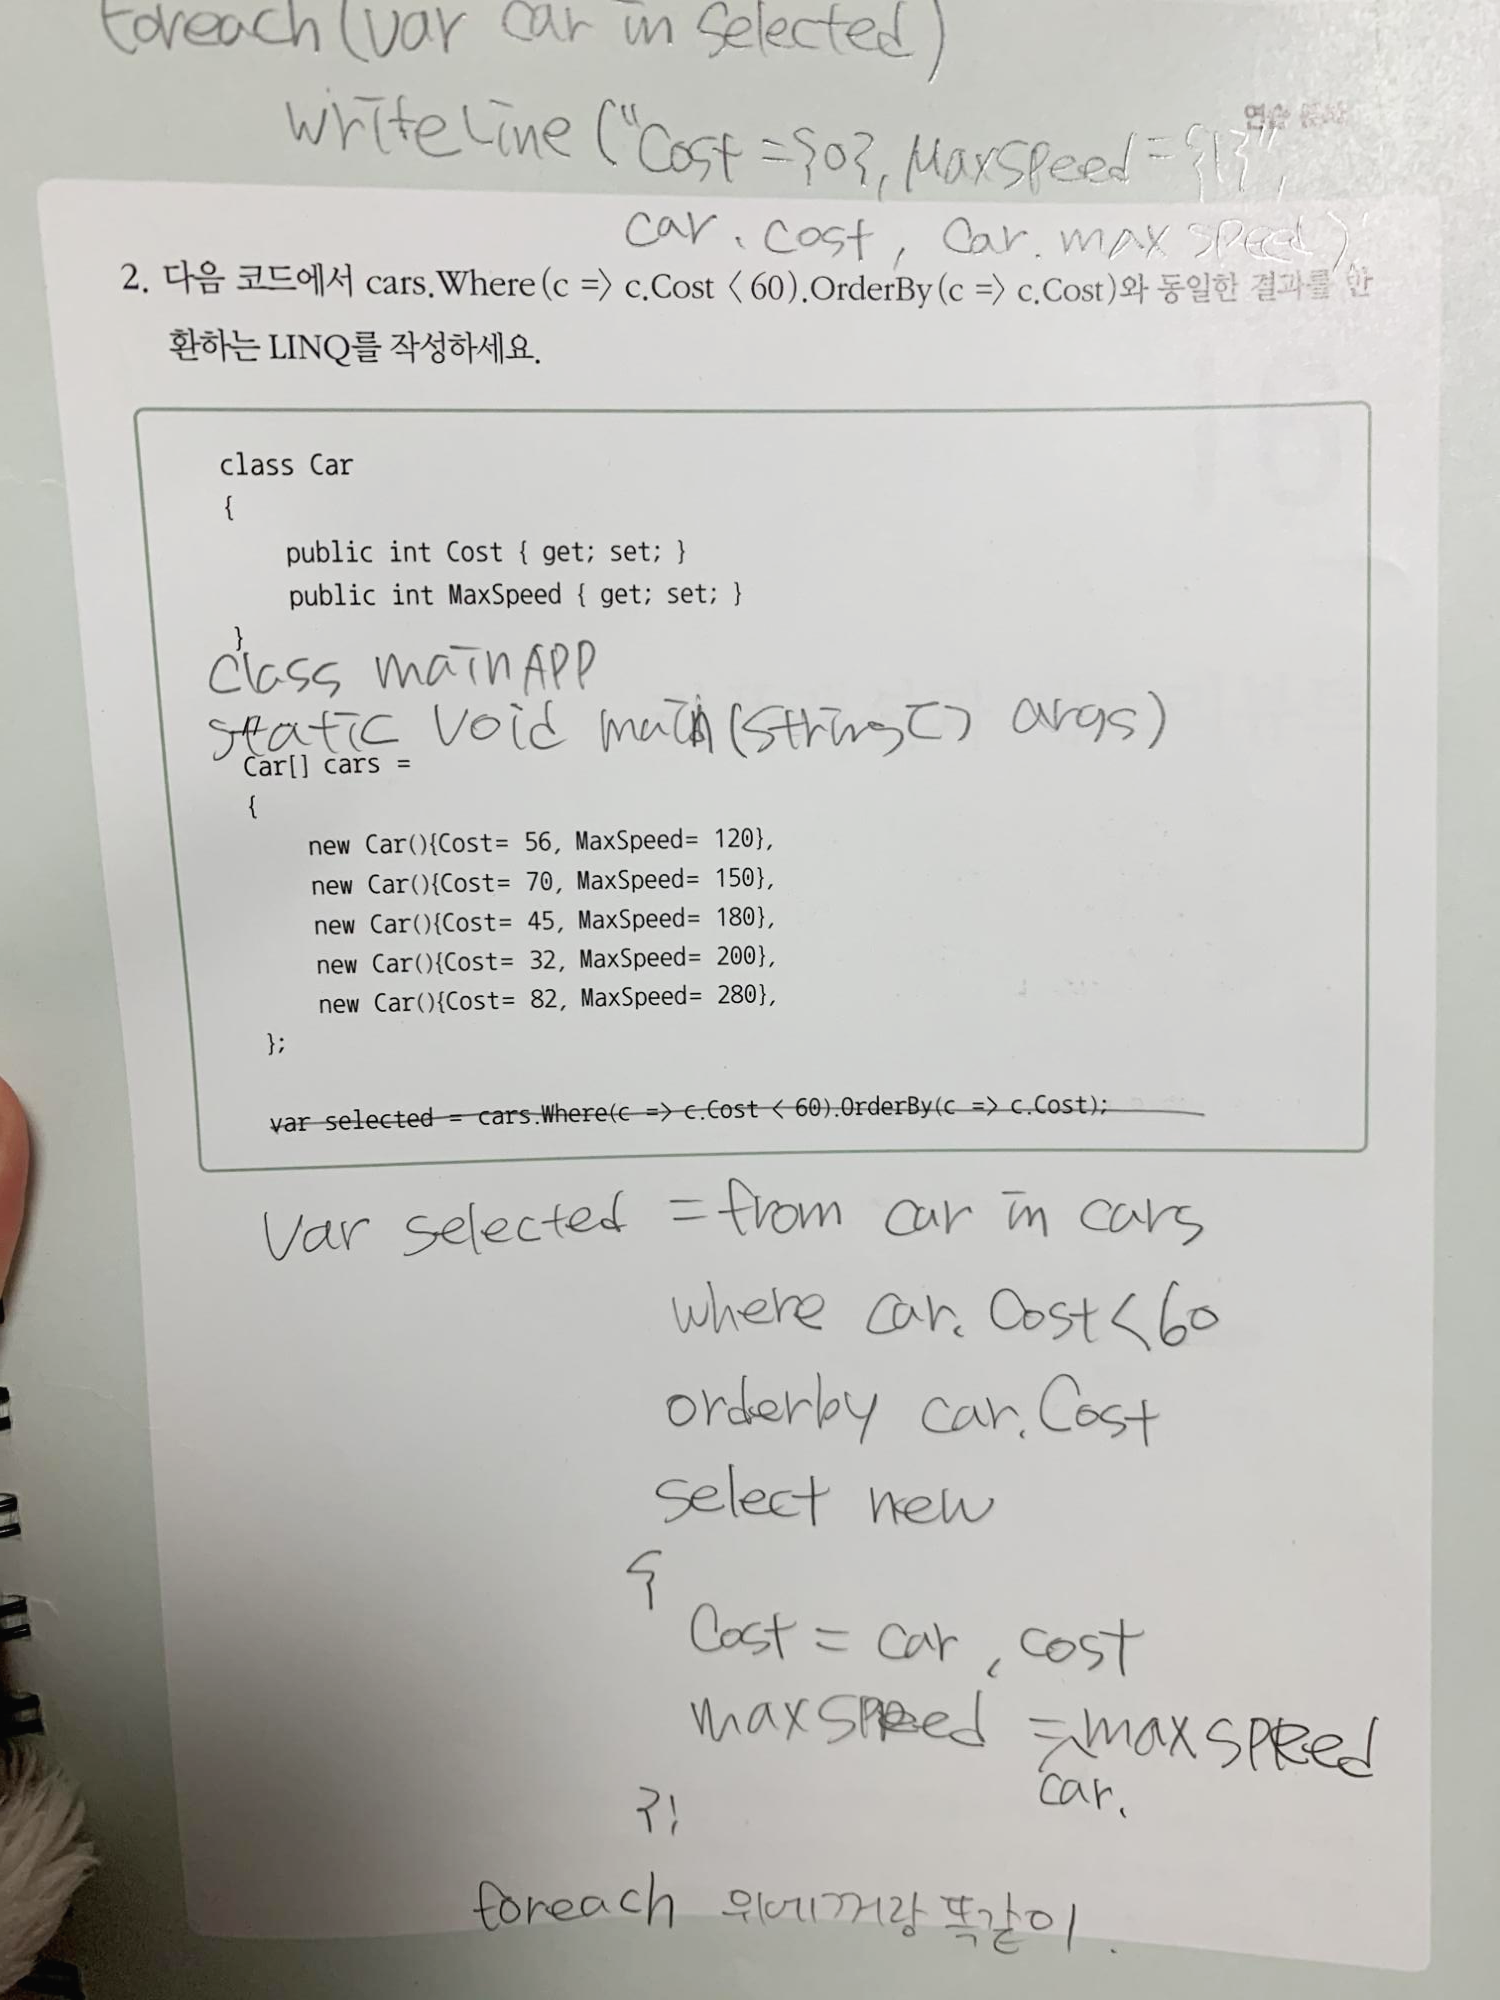 foreach(var car in selected)
연습 문제
writeLine("Cost={0}, MaxSpeed={1}",
car.cost, car.maxspeed)
2. 다음 코드에서 cars.Where(c => c.Cost < 60).OrderBy(c => c.Cost)와 동일한 결과를 반
환하는 LINQ를 작성하세요.
class Car
{
public int Cost { get; set; }
public int MaxSpeed { get; set; }
}
class mainAPP
static void main(string[] args)
Car[] cars =
{
new Car(){Cost= 56, MaxSpeed= 120},
new Car(){Cost= 70, MaxSpeed= 150},
new Car(){Cost= 45, MaxSpeed= 180},
new Car(){Cost= 32, MaxSpeed= 200},
new Car(){Cost= 82, MaxSpeed= 280},
};
var selected = cars.Where(c => c.Cost < 60).OrderBy(c => c.Cost);
Var selected = from car in cars
where car.Cost<60
orderby car.Cost
select new
{
Cost = car.cost
maxspeed = maxspeed
car.
};
foreach 위에꺼랑 똑같이.